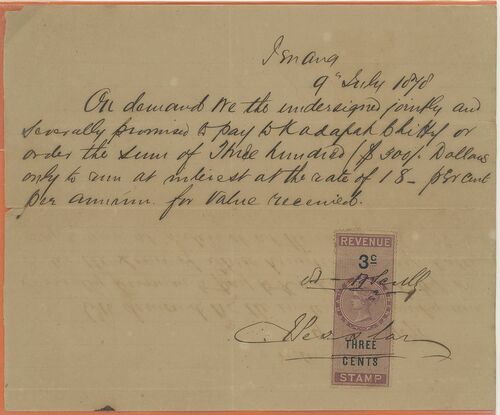 Penang
9th July 1878
On demand We the undersigned jointly and
severally promised to pay to Kadapah Chitty or
order the sum of Three hundred ($300/. Dollars
only to run at interest at the rate of 18 - per cent
per annum for value received.
REVENUE
3c
THREE
CENTS
STAMP